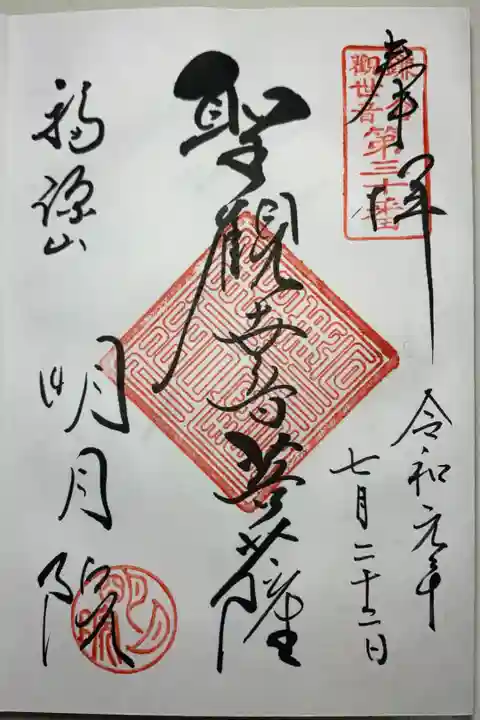 奉拝
鎌倉
観世音第三十番
令和元年
七月二十二日
聖観世音菩薩
福源山
明月院